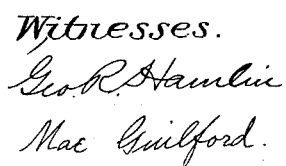 Witnesses.
Geo. R. Hamlin
Mae Guilford.